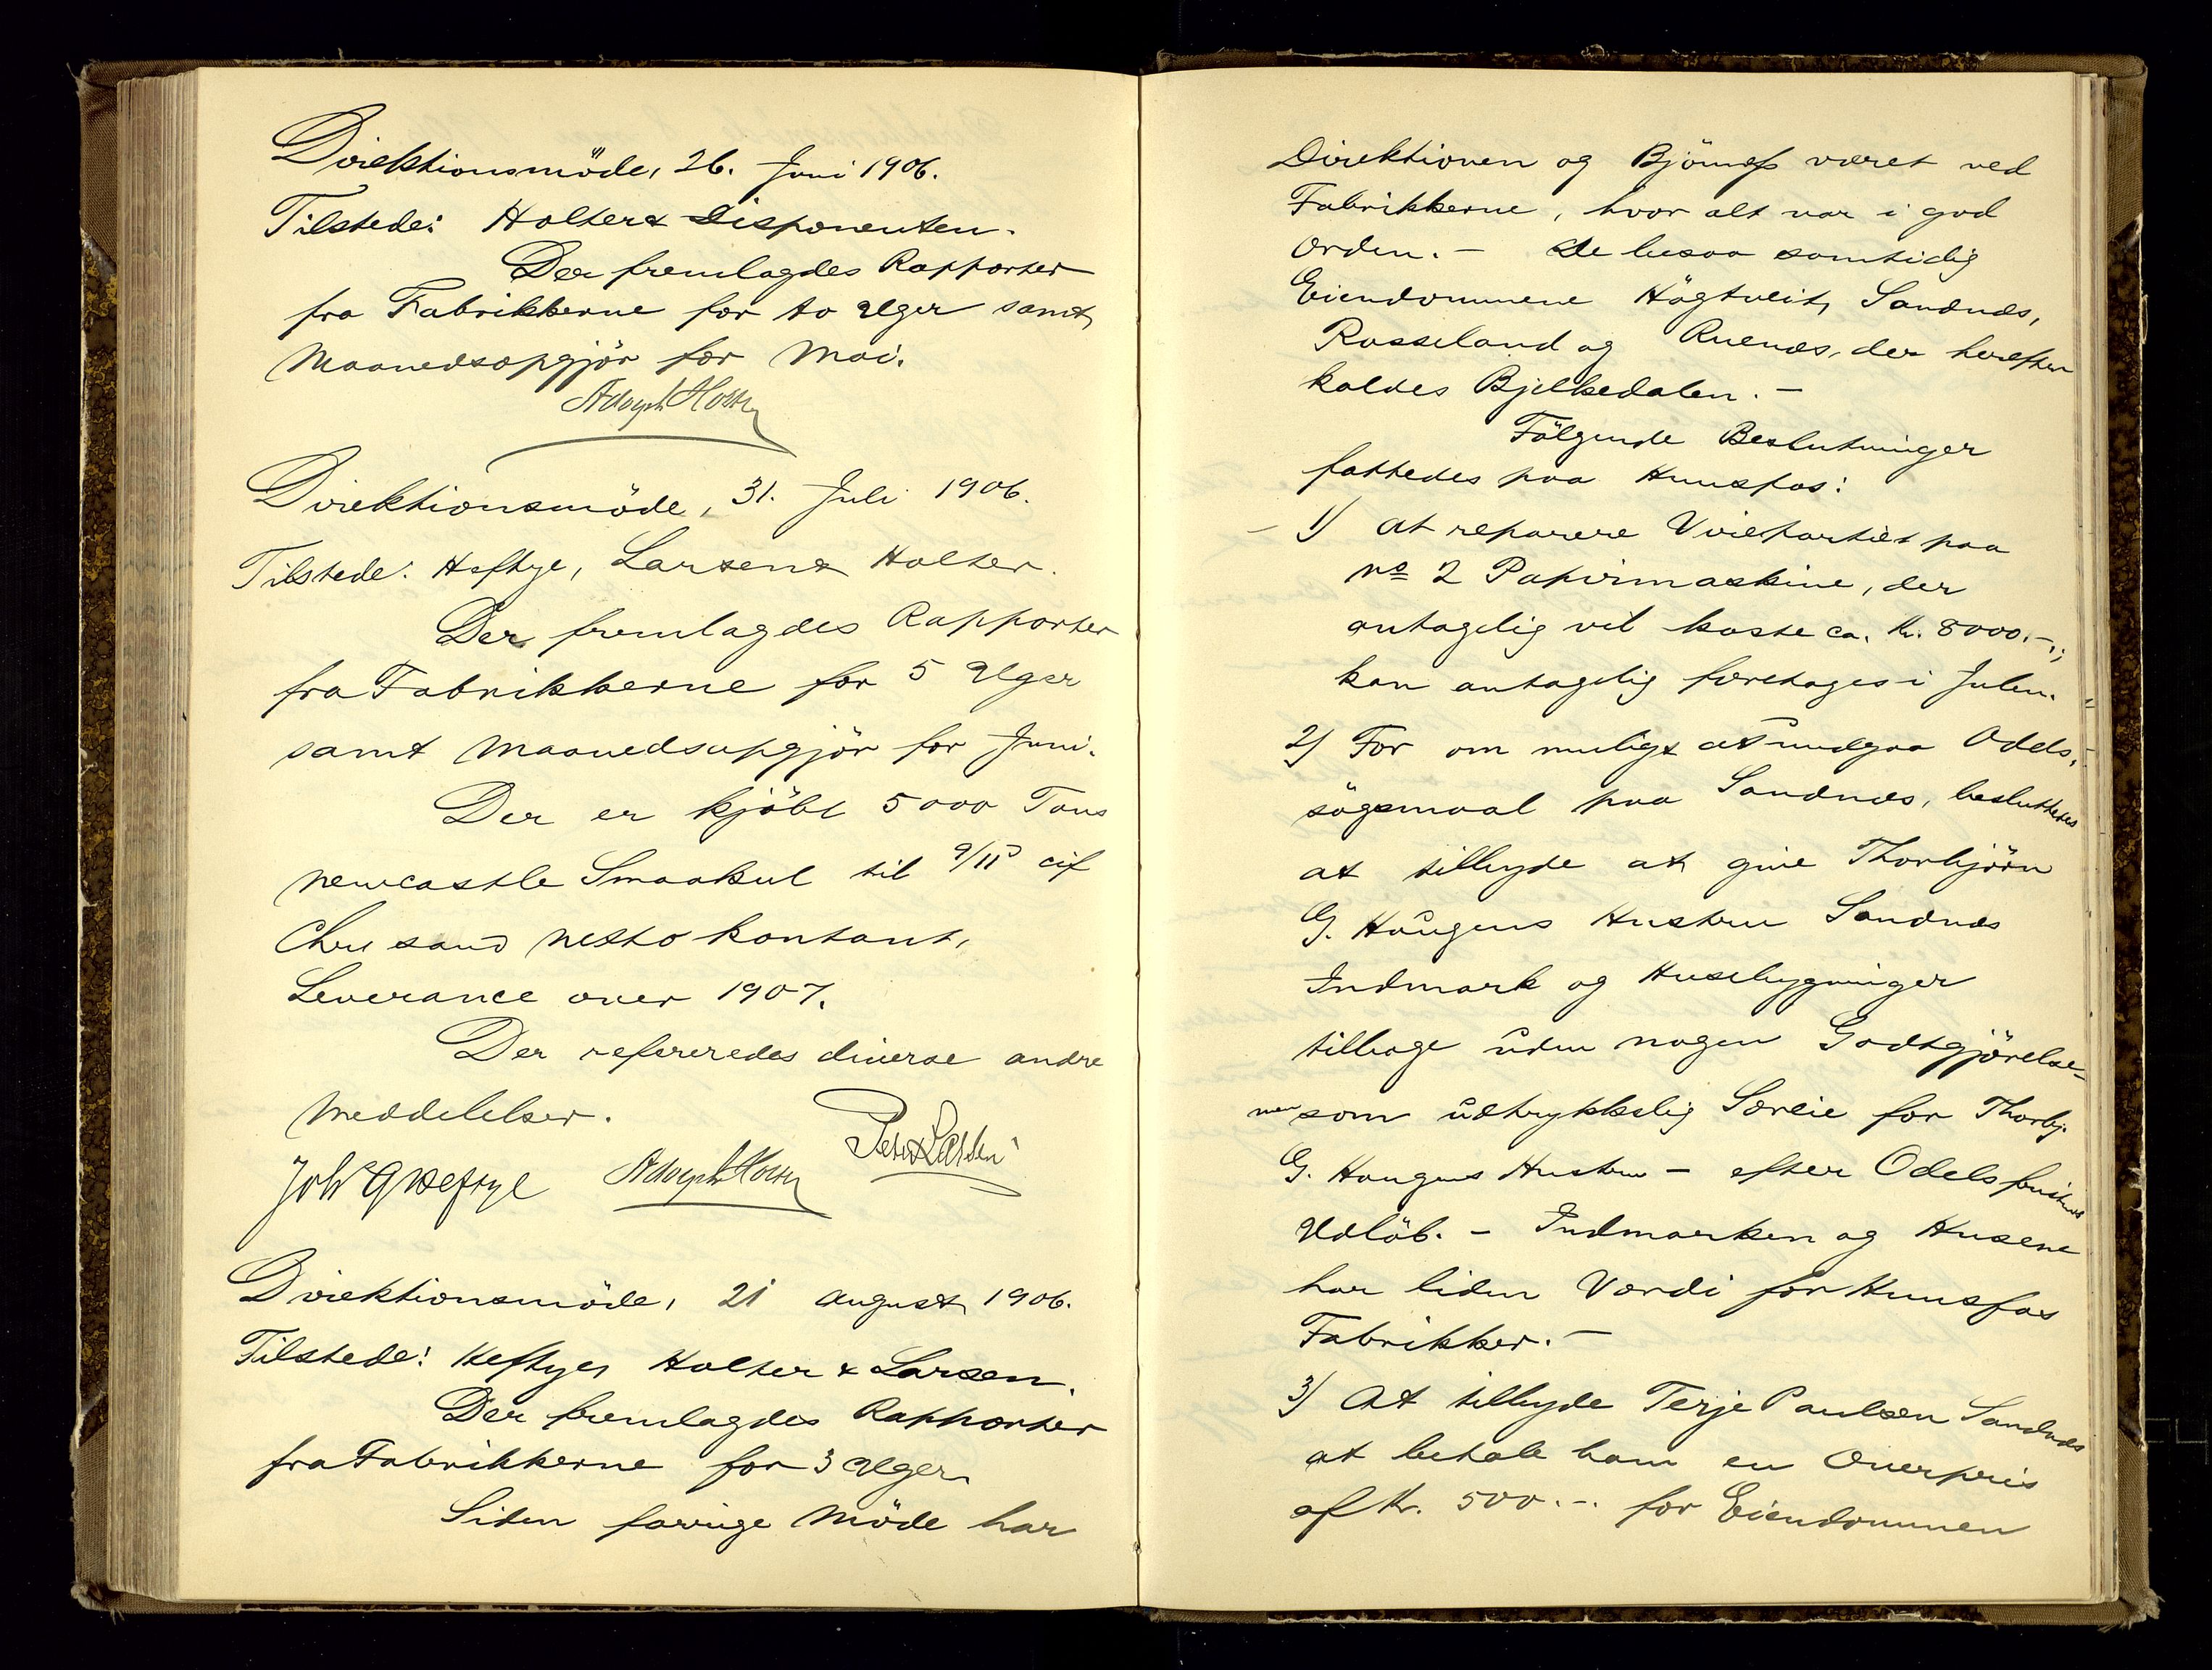 Direktionsmöde, 26. Juni 1906.
Tilstede: Holter & Disponenten.
Der fremlagdes Rapporter
fra Fabrikkerne for to Uger samt
Maanedsopgjör for Mai.
Adolph Holter
Direktionsmöde, 31. Juli 1906.
Tilstede: Heftye, Larsen & Holter.
Der fremlagdes Rapporter
fra Fabrikkerne for 5 Uger
samt Maanedsopgjör for Juni.
Der er kjöbt 5000 Tons
Newcastle Smaakul til 9/11 cif
Chrsand netto kontant,
Leverance over 1907.
Der refereredes diverse andre
Meddelelser.
Joh G Heftye Adolph Holter Peter Larsen
Direktionsmöde, 21 August 1906.
Tilstede: Heftye, Holter & Larsen.
Der fremlagdes Rapporter
fra Fabrikkerne for 3 Uger.
Siden forrige Möde har
Direktionen og Björness været ved
Fabrikkerne, hvor alt var i god
Orden. – De besaa samtidig
Eiendommene Högtveit, Sandnes,
Rosseland og Ruenæs, der herefter
kaldes Bjelkedalen. –
Fölgende Beslutninger
fattedes paa Hunsfos:
1) At reparere Virepartiet paa
No 2 Papirmaskine, der
antagelig vil koste ca. Kr. 8000.–;
kan antagelig foretages i Julen.
2) For om muligt at undgaa Odels-
sögsmaal paa Sandnæs, besluttedes
at tilbyde at give Thorbjörn
G. Haugens Hustru Sandnæs
Indmark og Husebygninger
tilbage uden nogen Godtgjörelse –
men som udtrykkelig Særeie for Thorbj.
G. Haugens Hustru – efter Odelsfristens
Udlöb. – Indmarken og Husene
har liden Værdi for Hunsfos
Fabrikker. –
3) At tilbyde Terje Paulsen Sandnæs
at betale ham en Overpris
af Kr. 500.–. for Eiendommen